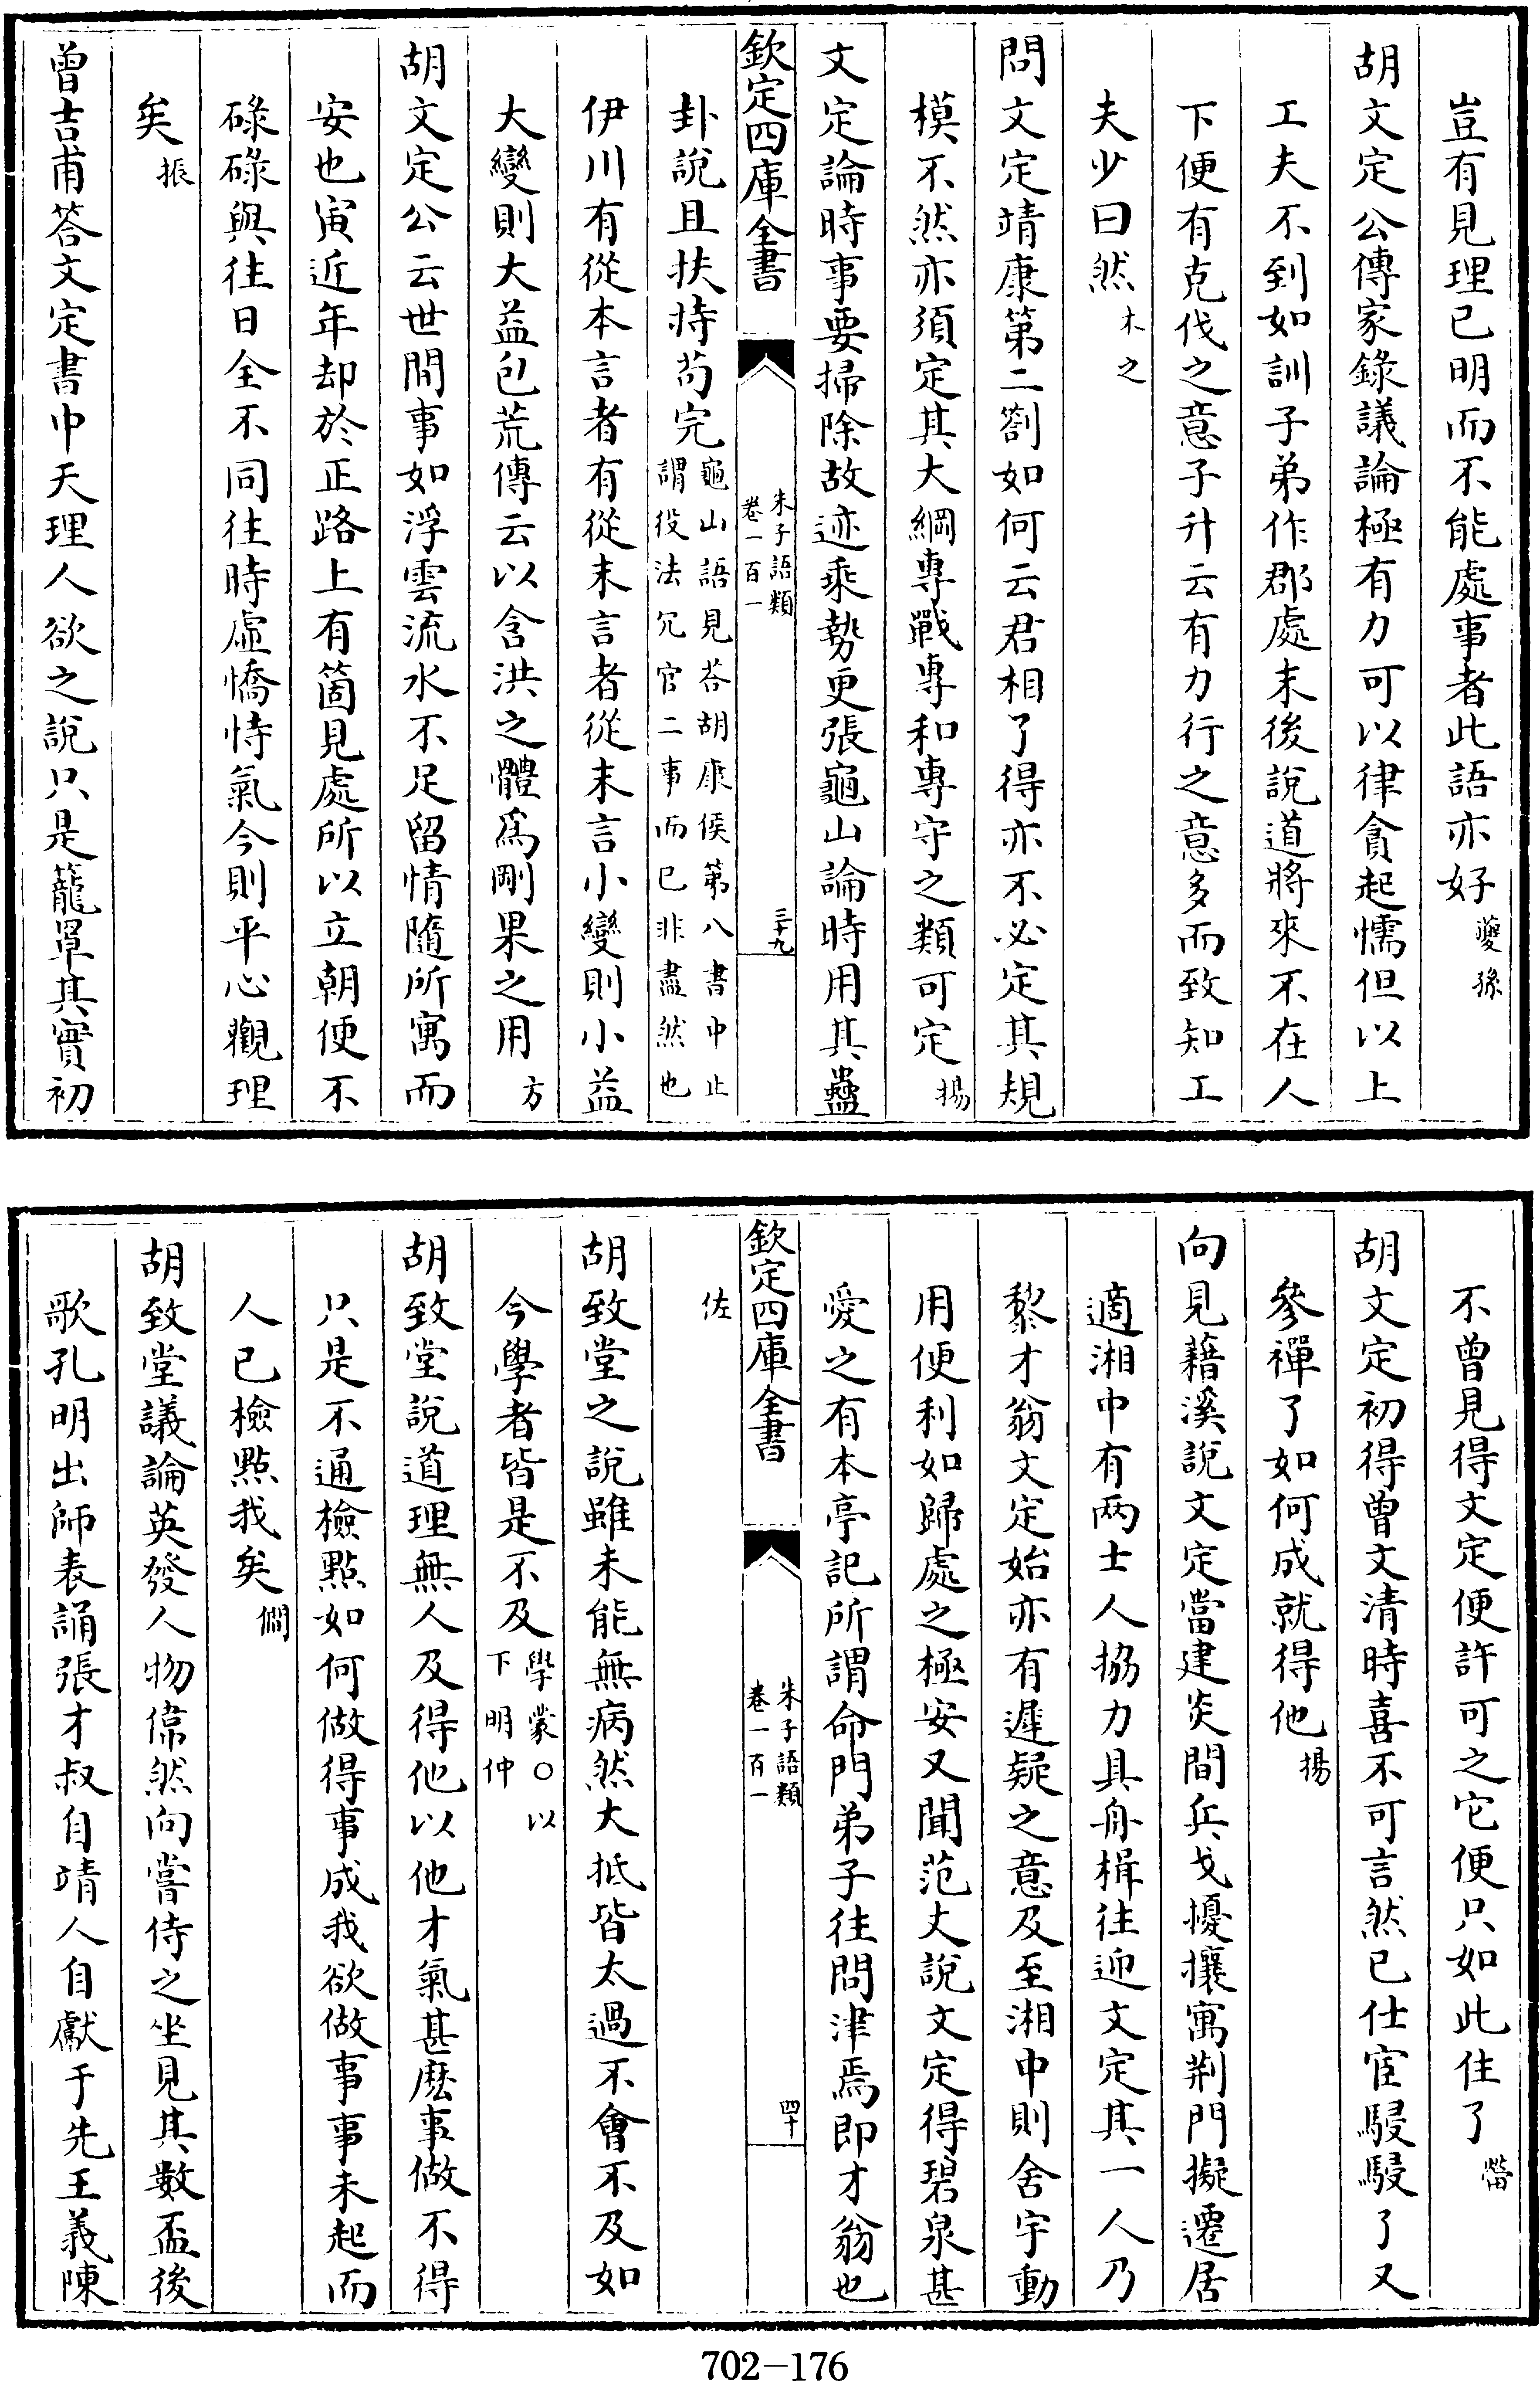 豈有見理已明而不能處事者此語亦好䕫孫
胡文定公傳家錄議論極有力可以律貪起懦但以上
工夫不到如訓子弟作郡處末後說道將來不在人
下便有克伐之意子升云有力行之意多而致知工
夫少曰然木之
問文定靖康第二劄如何云君相了得亦不必定其規
模不然亦須定其大綱專戰專和專守之類可定揚
文定論時事要掃除故迹乘勢更張龜山論時用其蠱
欽定四庫全書
朱子語類
卷一百一
三十九
卦說且扶持苟完龜山語見荅胡康侯第八書中止
謂役法冗官二事而已非盡然也
伊川有從本言者有從末言者從末言小變則小益
大變則大益包荒傳云以含洪之體為剛果之用方
胡文定公云世間事如浮雲流水不足留情隨所寓而
安也寅近年却於正路上有箇見處所以立朝便不
碌碌與往日全不同往時虛憍恃氣今則平心觀理
矣振
曾吉甫答文定書中天理人欲之說只是籠罩其實初
不曾見得文定便許可之它便只如此住了㽦
胡文定初得曾文清時喜不可言然已仕宦駸駸了又
參禪了如何成就得他揚
向見藉溪說文定當建炎間兵戈擾攘寓荆門擬遷居
適湘中有两士人協力具舟楫往迎文定其一人乃
黎才翁文定始亦有遲疑之意及至湘中則舍宇動
用便利如歸處之極安又聞范丈說文定得碧泉甚
愛之有本亭記所謂命門弟子往問津焉即才翁也
欽定四庫全書
朱子語類
卷一百一
四十
佐
胡致堂之說雖未能無病然大抵皆太過不會不及如
今學者皆是不及學蒙○以
下明仲
胡致堂說道理無人及得他以他才氣甚麽事做不得
只是不通檢點如何做得事成我欲做事事未起而
人已檢點我矣僩
胡致堂議論英發人物偉然向嘗侍之坐見其數盃後
歌孔明出師表誦張才叔自靖人自獻于先王義陳
702—176